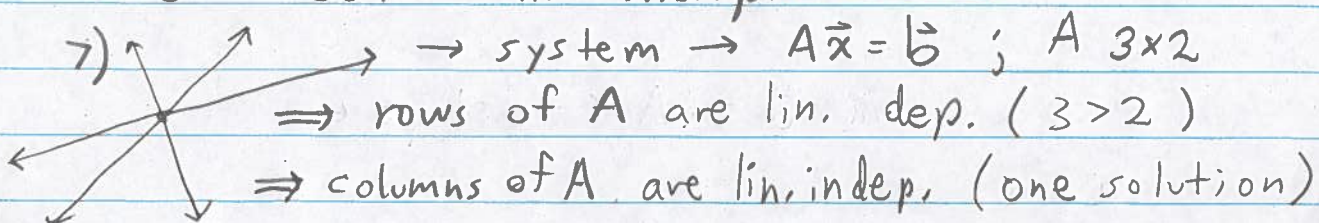 7) → system → A𝑥⃗ = b⃗ ; A 3×2
⇒ rows of A are lin. dep. (3>2)
⇒ columns of A are lin. indep. (one solution)